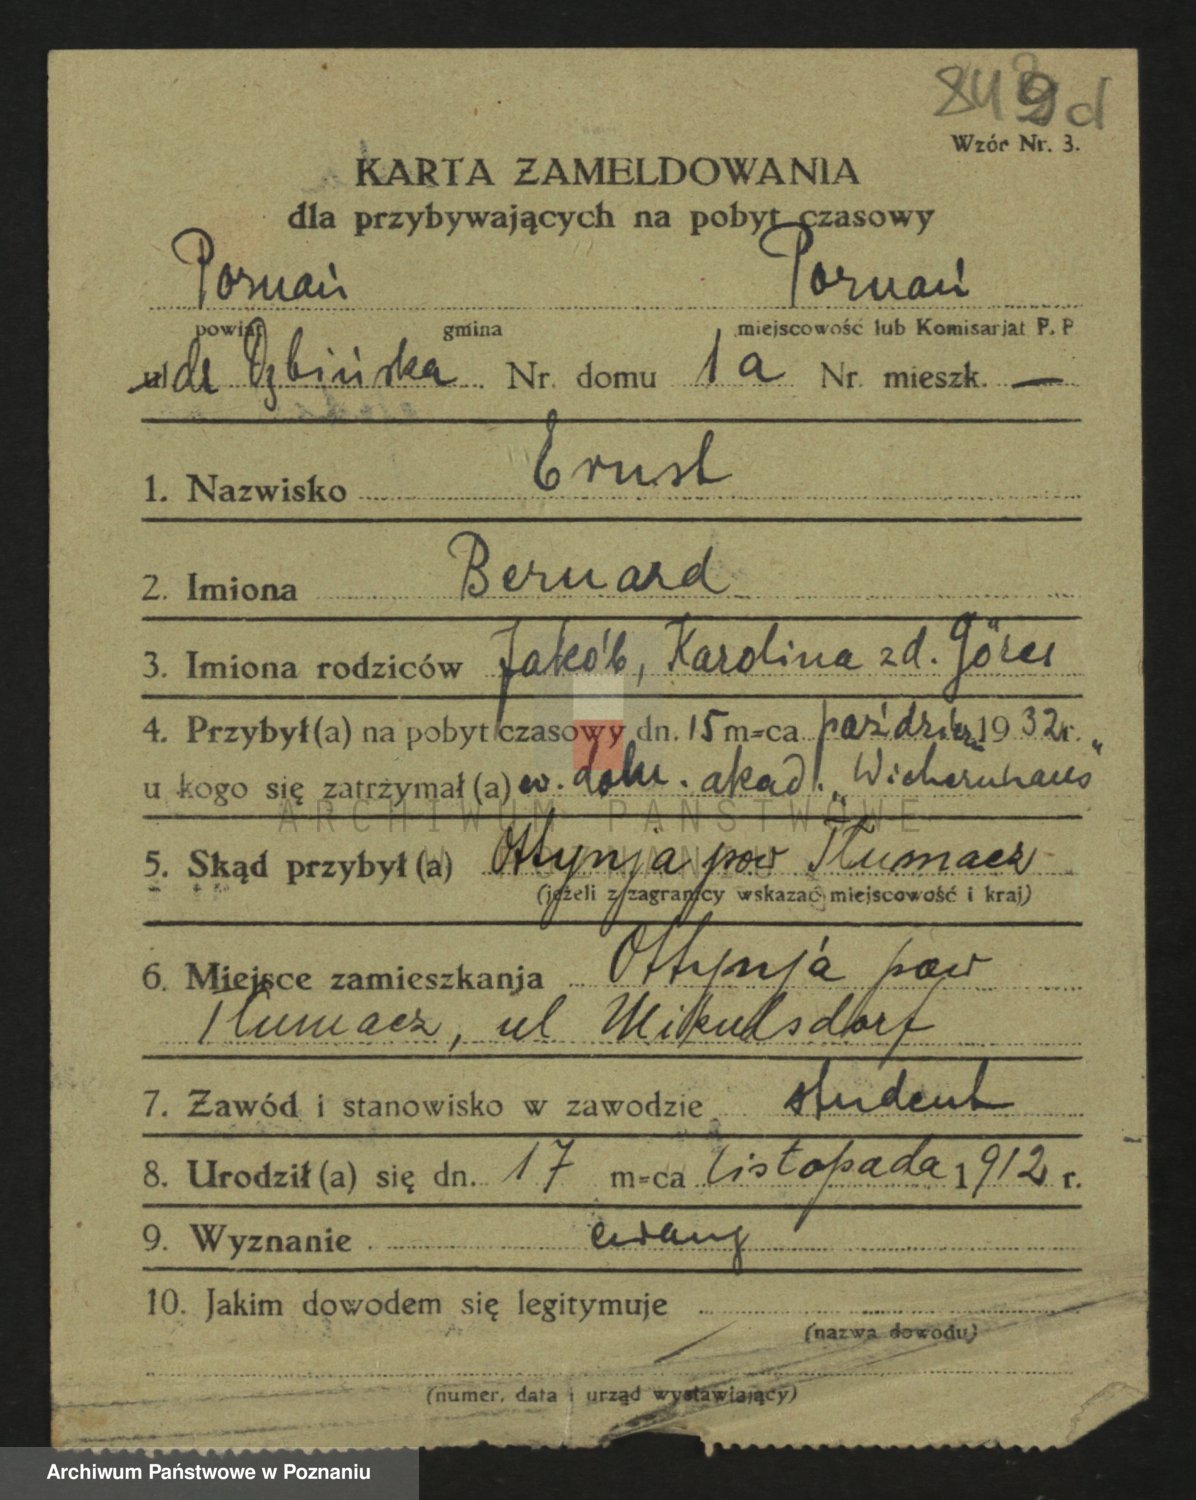 8439d
Wzór Nr. 3.
KARTA ZAMELDOWANIA
dla przybywających na pobyt czasowy
Poznań Poznań
powiat gmina miejscowość lub Komisarjat P. P
ul Dębińska Nr. domu 1a Nr. mieszk. —
1. Nazwisko Ernst
2. Imiona Bernard
3. Imiona rodziców Jakób, Karolina zd. Göres
4. Przybył(a) na pobyt czasowy dn. 15 m-ca paździer. 1932 r.
u kogo się zatrzymał(a) w. dom. akad. „Wichernhaus"
ARCHIWUM PAŃSTWOWE
W POZNANIU
5. Skąd przybył(a) Ottynja pow Tłumacz
(jeżeli z zagranicy wskazać miejscowość i kraj)
6. Miejsce zamieszkanja Ottynja pow
Tłumacz, ul Mikulsdorf
7. Zawód i stanowisko w zawodzie student
8. Urodził(a) się dn. 17 m-ca listopada 1912 r.
9. Wyznanie ewang
10. Jakim dowodem się legitymuje
(nazwa dowodu)
(numer, data i urząd wystawiający)
Archiwum Państwowe w Poznaniu